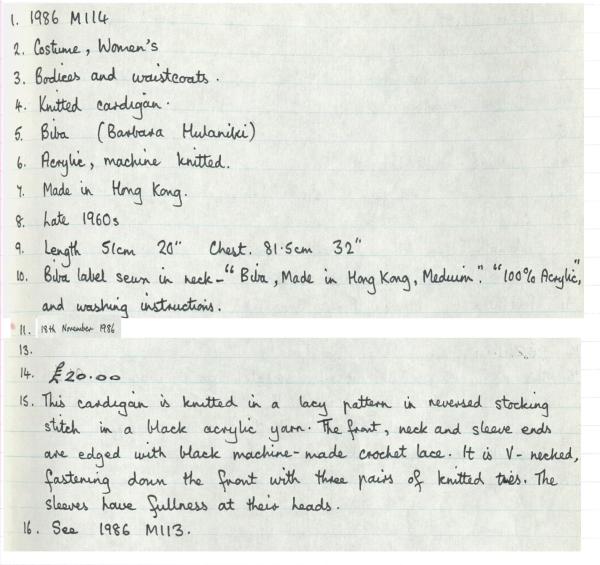 1. 1986 M114
2. Costume, Women's
3. Bodices and waistcoats.
4. Knitted cardigan.
5. Biba (Barbara Hulaniki)
6. Acrylic, machine knitted.
7. Made in Hong Kong.
8. Late 1960s
9. Length 51cm 20" Chest. 81.5cm 32"
10. Biba label sewn in neck - "Biba, Made in Hong Kong, Medium". "100% Acrylic",
and washing instructions.
11. 18th November 1986
13.
14. £20.00
15. This cardigan is knitted in a lacy pattern in reversed stocking
stitch in a black acrylic yarn. The front, neck and sleeve ends
are edged with black machine-made crochet lace. It is V-necked,
fastening down the front with three pairs of knitted ties. The
sleeves have fullness at their heads.
16. See 1986 M113.